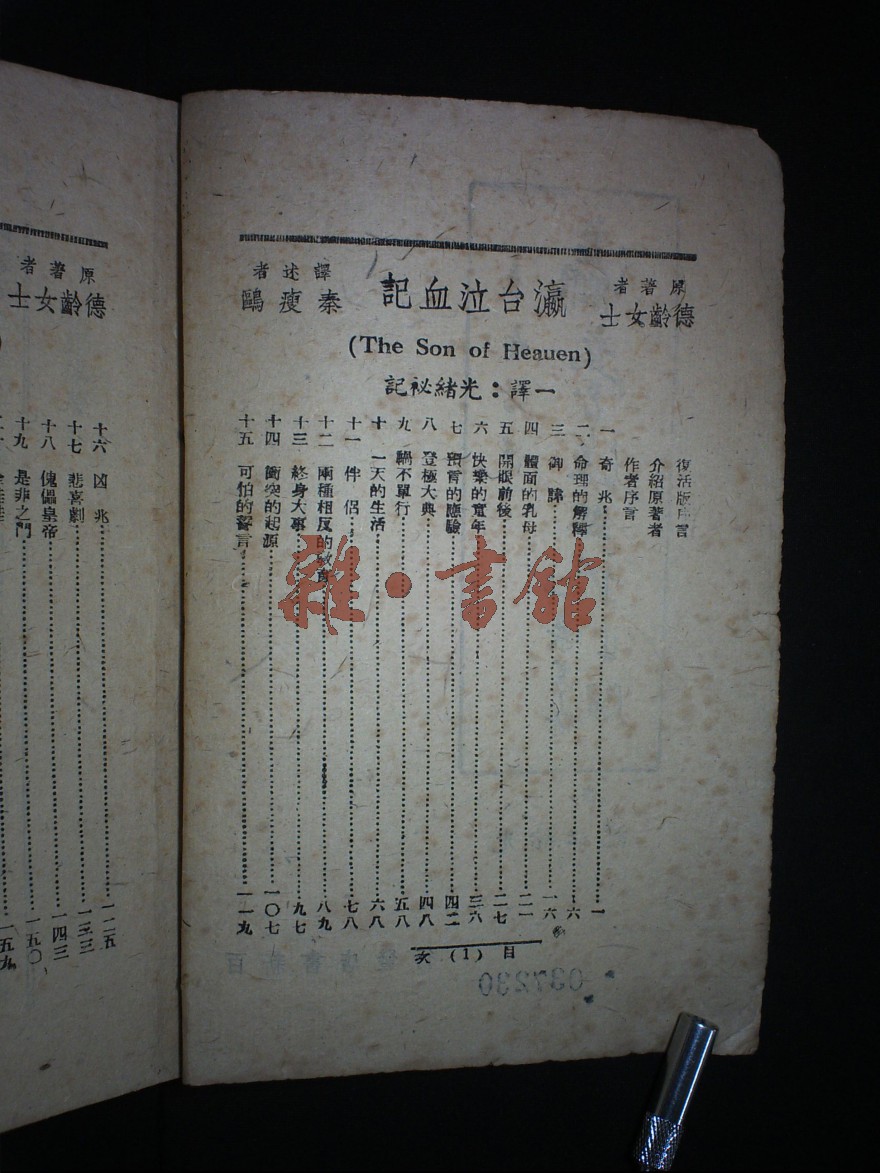 原著者
德齡女士
瀛台泣血記
譯述者
秦瘦鷗
(The Son of Heauen)
一譯：光緒祕記
復活版序言
介紹原著者
作者序言
一 奇兆……一
二 命理的解釋……六
三 御……一六
四 體面的乳母……二一
五 開眼前後……二七
六 快樂的童年……三六
七 預言的應驗……四二
八 登極大典……四八
九 禍不單行……五八
十 一天的生活……六八
十一 伴侶……七八
十二 兩種相反的教育……八九
十三 終身大事……九七
十四 衝突的起源……一〇七
十五 可怕的誓言……一一九
目 (1) 次
037230
原著者
德齡女士
十六 凶兆……一二五
十七 悲喜劇……一三三
十八 傀儡皇帝……一四三
十九 是非之門……一五〇
一五九
雜·書館